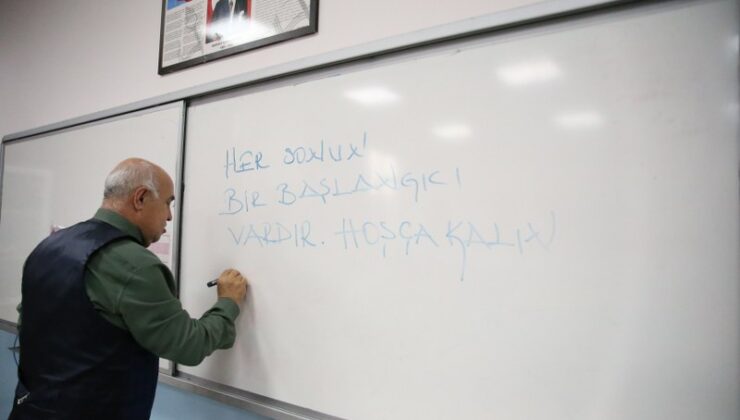 HER SONUN
BİR BAŞLANGICI
VARDIR. HOŞÇA KALIN